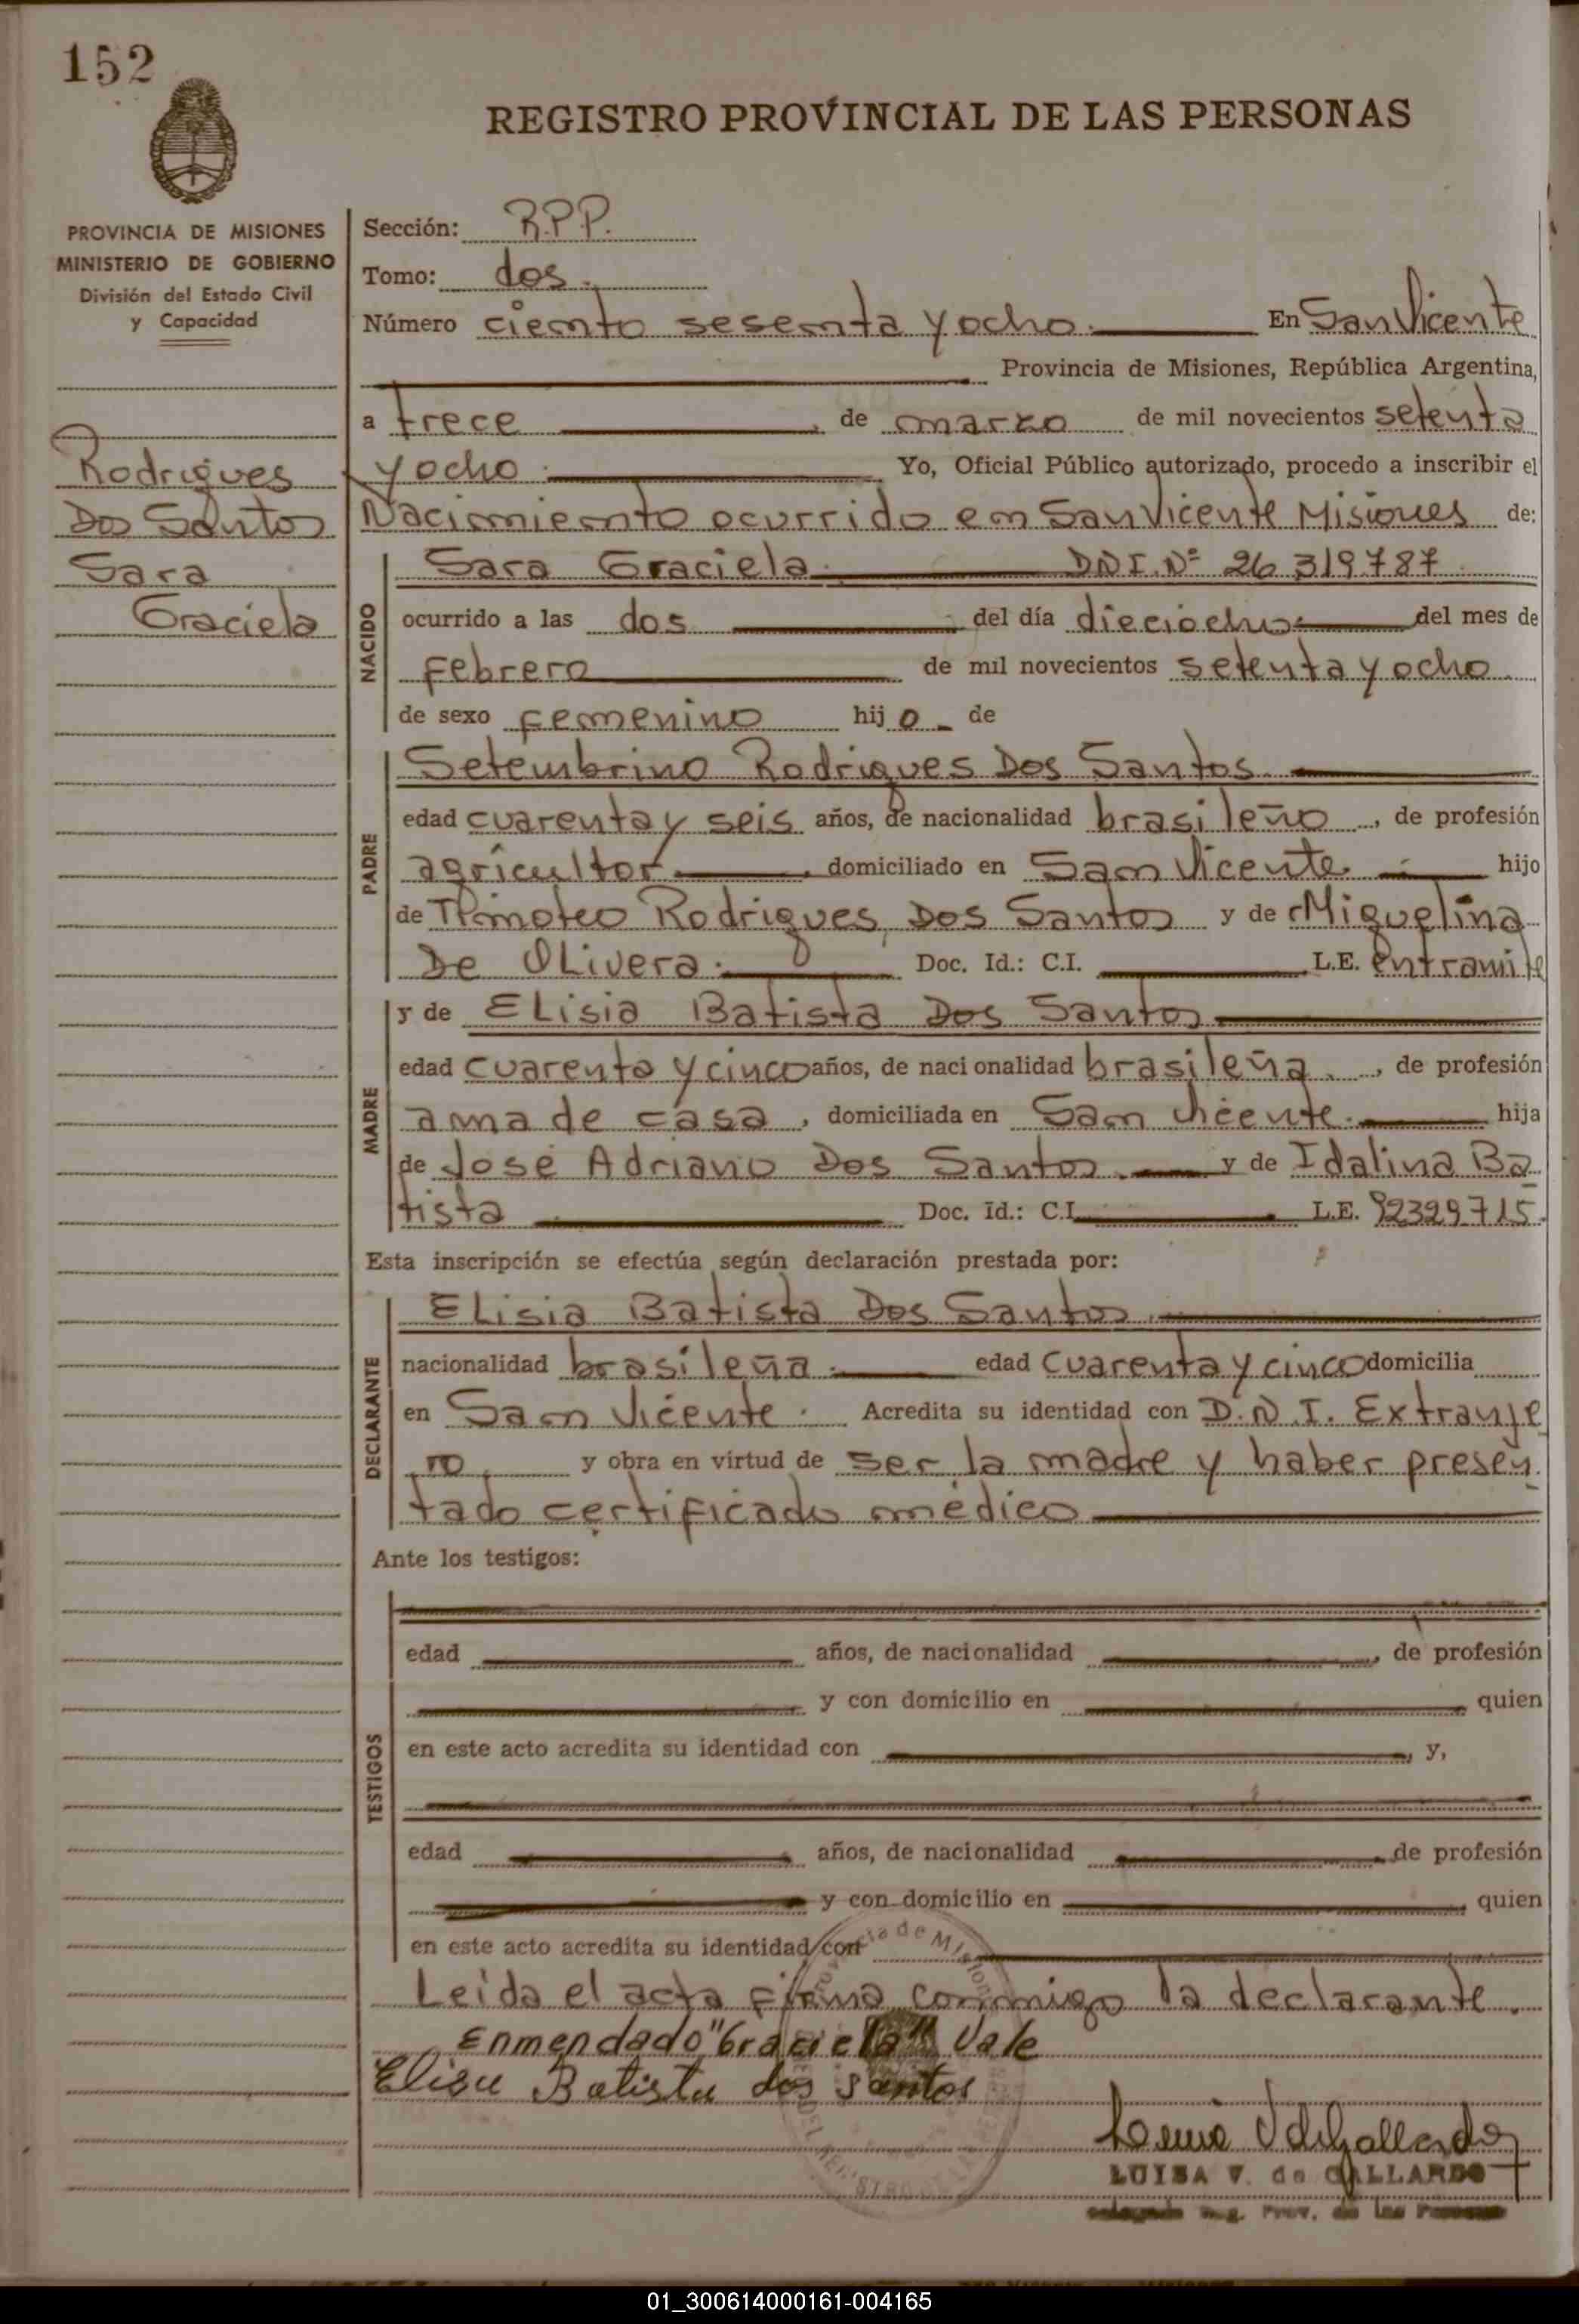 152
REGISTRO PROVINCIAL DE LAS PERSONAS
PROVINCIA DE MISIONES
MINISTERIO DE GOBIERNO
División del Estado Civil
y Capacidad
Rodrigues
Dos Santos
Sara
Graciela
Sección: R.P.P.
Tomo: dos.
Número ciento sesenta y ocho. En San Vicente
Provincia de Misiones, República Argentina,
a trece, de marzo de mil novecientos setenta
y ocho. Yo, Oficial Público autorizado, procedo a inscribir el
Nacimiento ocurrido en San Vicente Misiones de:
NACIDO
Sara Graciela. DNI. Nº 26.319.787
ocurrido a las dos del día dieciocho del mes de
febrero de mil novecientos setenta y ocho.
de sexo femenino hijo de
PADRE
Setembrino Rodrigues Dos Santos.
edad cuarenta y seis años, de nacionalidad brasileño, de profesión
agricultor, domiciliado en San Vicente. hijo
de Timoteo Rodrigues Dos Santos y de Miguelina
De Olivera. Doc. Id.: C.I. L.E. entramite
MADRE
y de Elisia Batista Dos Santos
edad cuarenta y cinco años, de nacionalidad brasileña., de profesión
ama de casa, domiciliada en San Vicente. hija
de José Adriano Dos Santos. y de Idalina Ba
tista Doc. Id.: C.I. L.E. 92329715.
Esta inscripción se efectúa según declaración prestada por:
DECLARANTE
Elisia Batista Dos Santos.
nacionalidad brasileña. edad cuarenta y cinco domicilia
en San Vicente. Acredita su identidad con D.N.I. Extranje
ro y obra en virtud de ser la madre y haber presen
tado certificado médico
Ante los testigos:
TESTIGOS
edad años, de nacionalidad, de profesión
y con domicilio en quien
en este acto acredita su identidad con, y,
edad años, de nacionalidad de profesión
y con domicilio en, quien
en este acto acredita su identidad con
Leída el acta firma conmigo la declarante.
Enmendado "Graciela" Vale
Elisa Batista dos santos
LUISA V. de GALLARDO
Reg. Prov. de las Personas
01_300614000161-004165